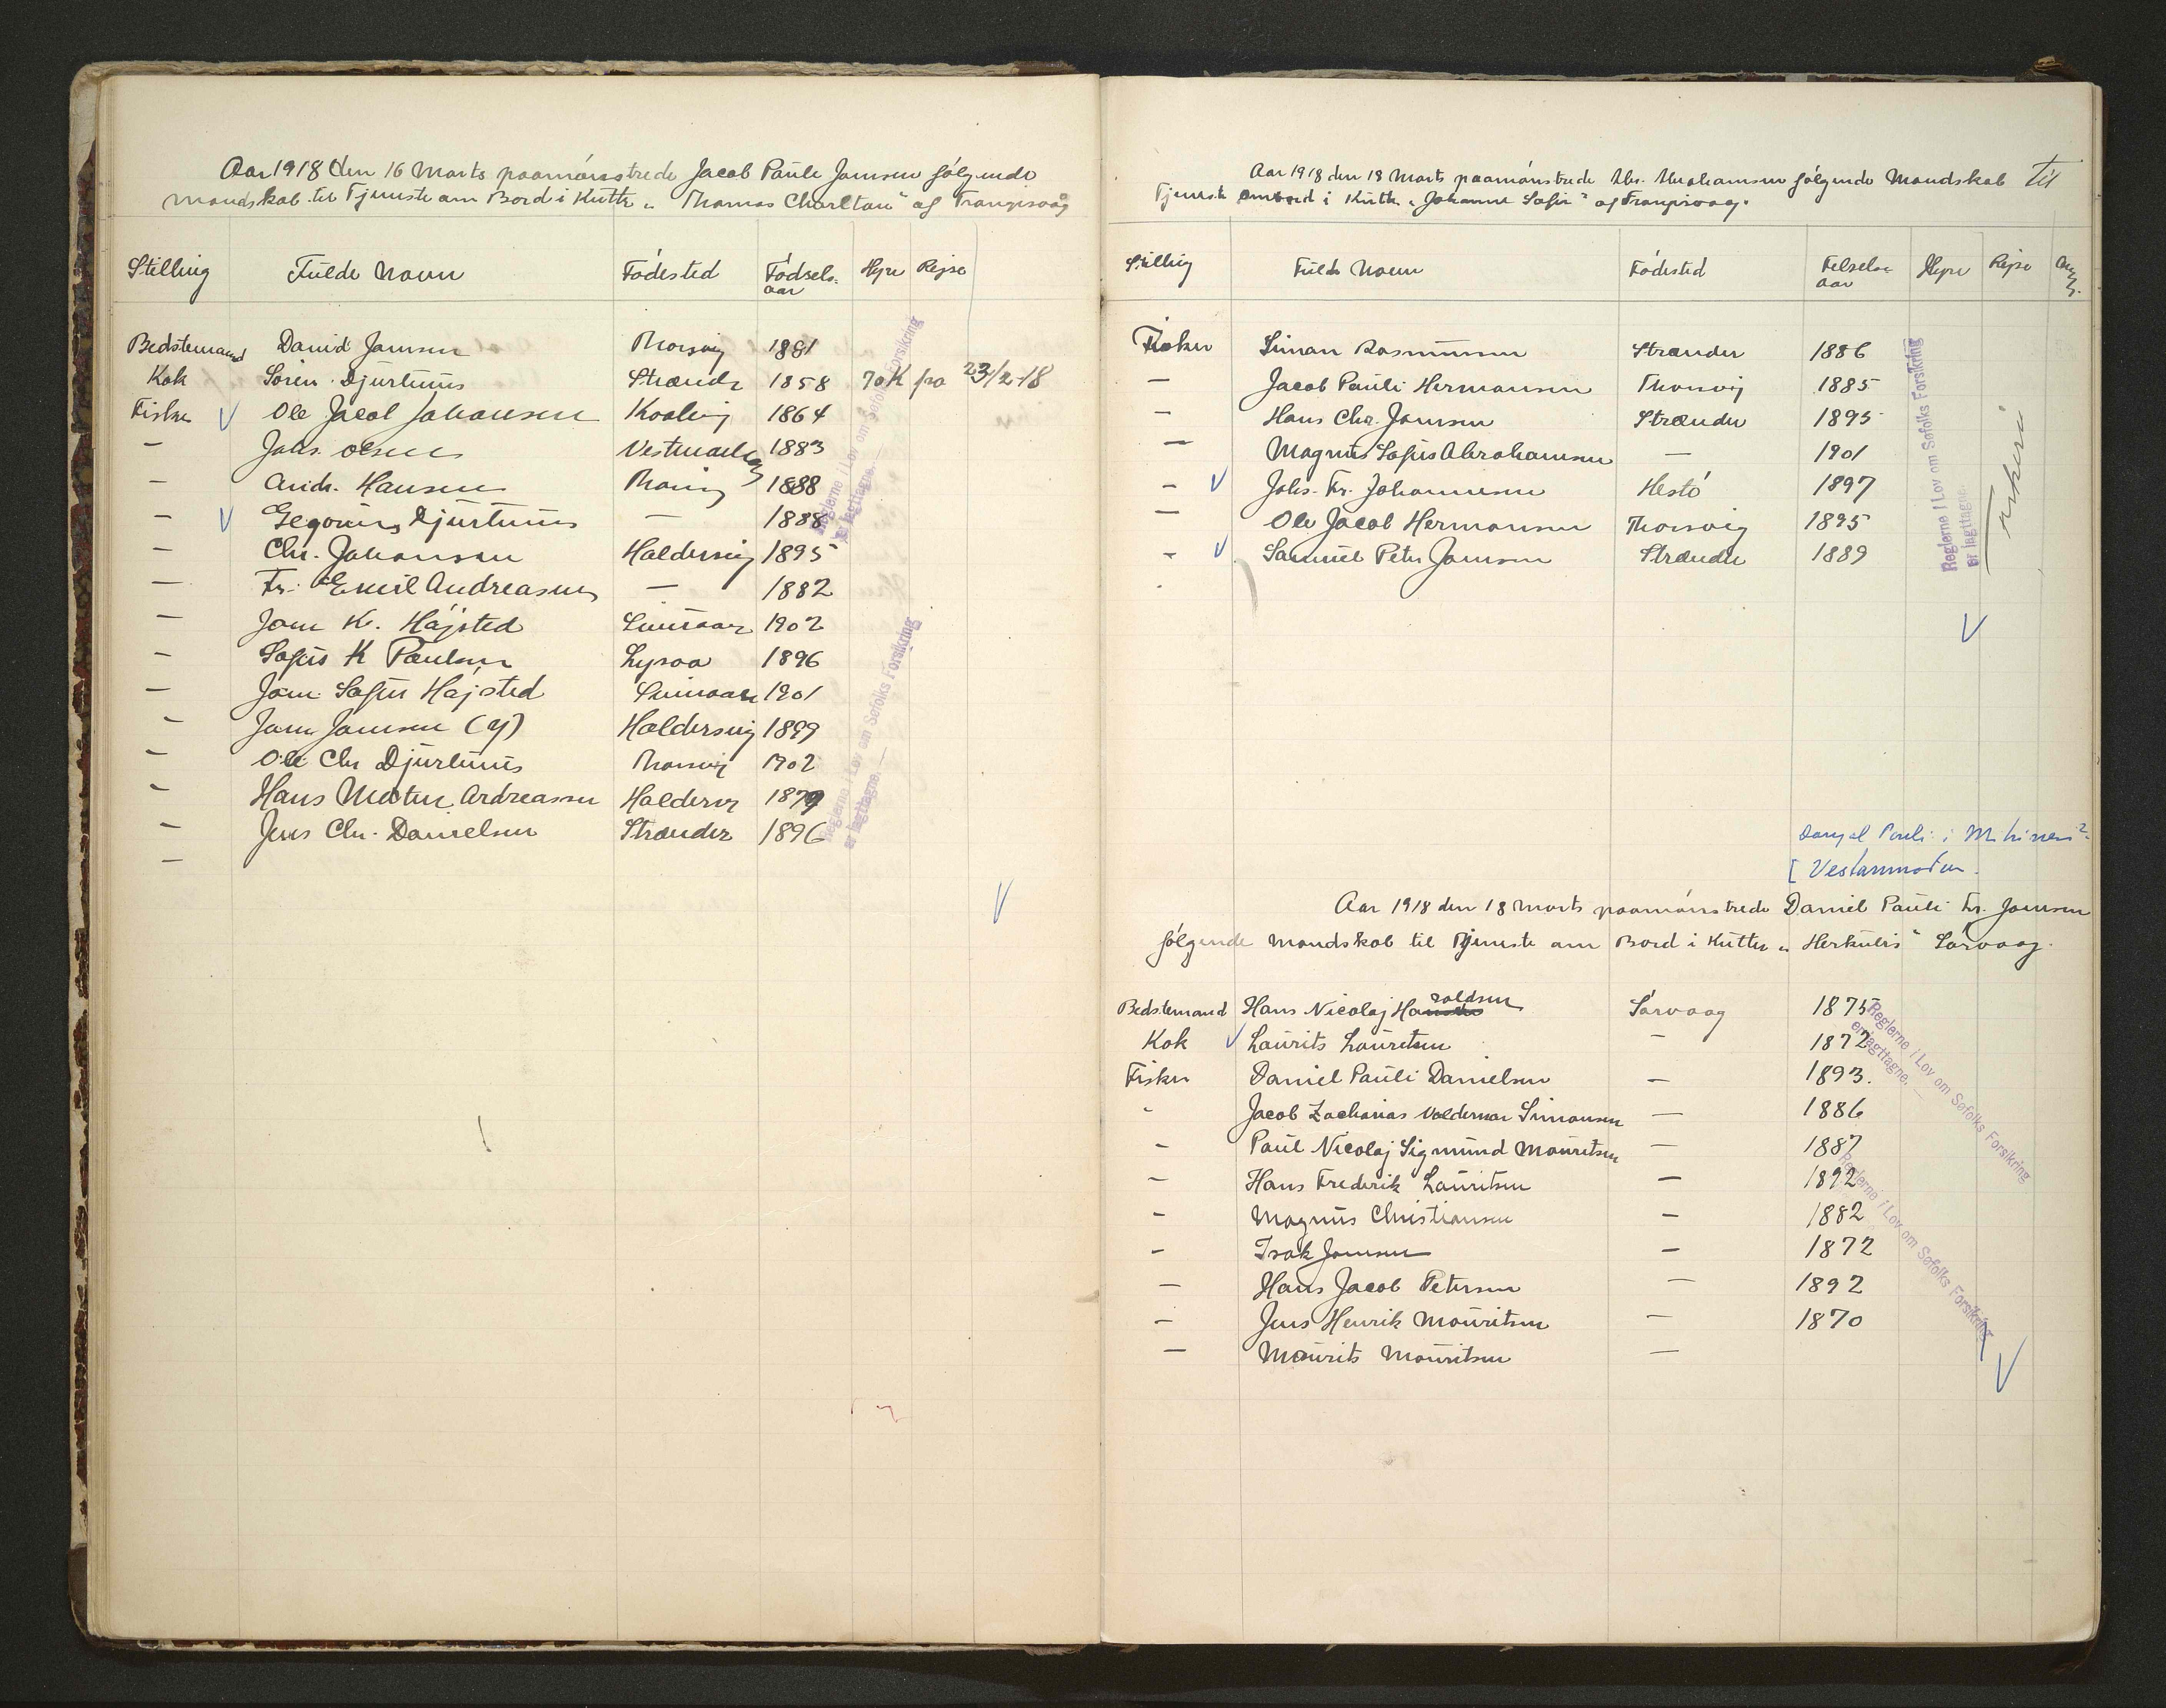 Aar 1918 den 16 Marts paamønstrede Jacob Pauli Joensen følgende
Mandskab til Tjeneste om Bord i Kutter „Thomas Charlton" af Trangisvaag
Stilling Fulde Navn Fødested Fødsels- Hyre Rejse
aar
Bedstemand David Joensen Thorsvig 1881
Kok Sören Djurhuus Strænder 1858 70 K fra 23/2-18
Fisker V Ole Jacob Johansen Kvalvig 1864
– Johs. Olsen Vestmanhavn 1883
– Andr. Hansen Thorsvig 1888
– V Djurhuus — 1888
– Chr. Johansen Haldersvig 1895
– Fr. Emil Andreasen — 1882
– Joen K. Højsted 1902
– Sofus K Paulsen 1896
– Joen Sofus Højsted 1901
– Joen Joensen (y) Haldersvig 1899
– Ole Chr Djurhuus Thorsvig 1902
– Hans Morten Andreasen Haldersv 1879
– Jens Chr. Danielsen Strænder 1896
–
Reglerne i Lov om Søfolks Forsikring
er iagttagne. —
Reglerne i Lov om Søfolks Forsikring
er iagttagne. —
V
Aar 1918 den 18 Marts paamønstrede Abrahamsen følgende Mandskab til
Tjeneste ombord i Kutter „Johanne Sofie" af Trangisvaag.
Stilling Fulde Navn Fødested Fødsels Hyre Rejse
aar
Fisker Simon Rasmussen Strænder 1886
— Jacob Pauli Hermansen Thorsvig 1885
— Hans Chr. Joensen Strænder 1895
— Magnus Sofus Abrahamsen — 1901
– V Johs. Fr. Johannesen Hestø 1897
— Ole Jacob Hermansen Thorsvig 1895
– V Samuel Peter Joensen Strænder 1889
Reglerne i Lov om Søfolks Forsikring
er iagttagne.
V
Pauli i
[ Vestanmøtun.
Aar 1918 den 18 Marts paamønstrede Daniel Pauli Fr. Joensen
følgende Mandskab til Tjeneste om Bord i Kutter „Herkules" Sørvaag.
Bedstemand Hans Nicolaj Haraldsen Sørvaag 1875
Kok V Laurits Lauritsen — 1872
Fisker Daniel Pauli Danielsen — 1893.
– Jacob Zacharias Valdemar Simonsen — 1886
– Paul Nicolaj Sigmund Mouritsen — 1887
– Hans Frederik Lauritsen — 1892
– Magnus Christiansen — 1882
– Isak Joensen — 1872
— Hans Jacob Petersen — 1892
– Jens Henrik Mouritsen — 1870
— Mourits Mouritsen —
Reglerne i Lov om Søfolks Forsikring
er iagttagne. —
Reglerne i Lov om Søfolks Forsikring
V